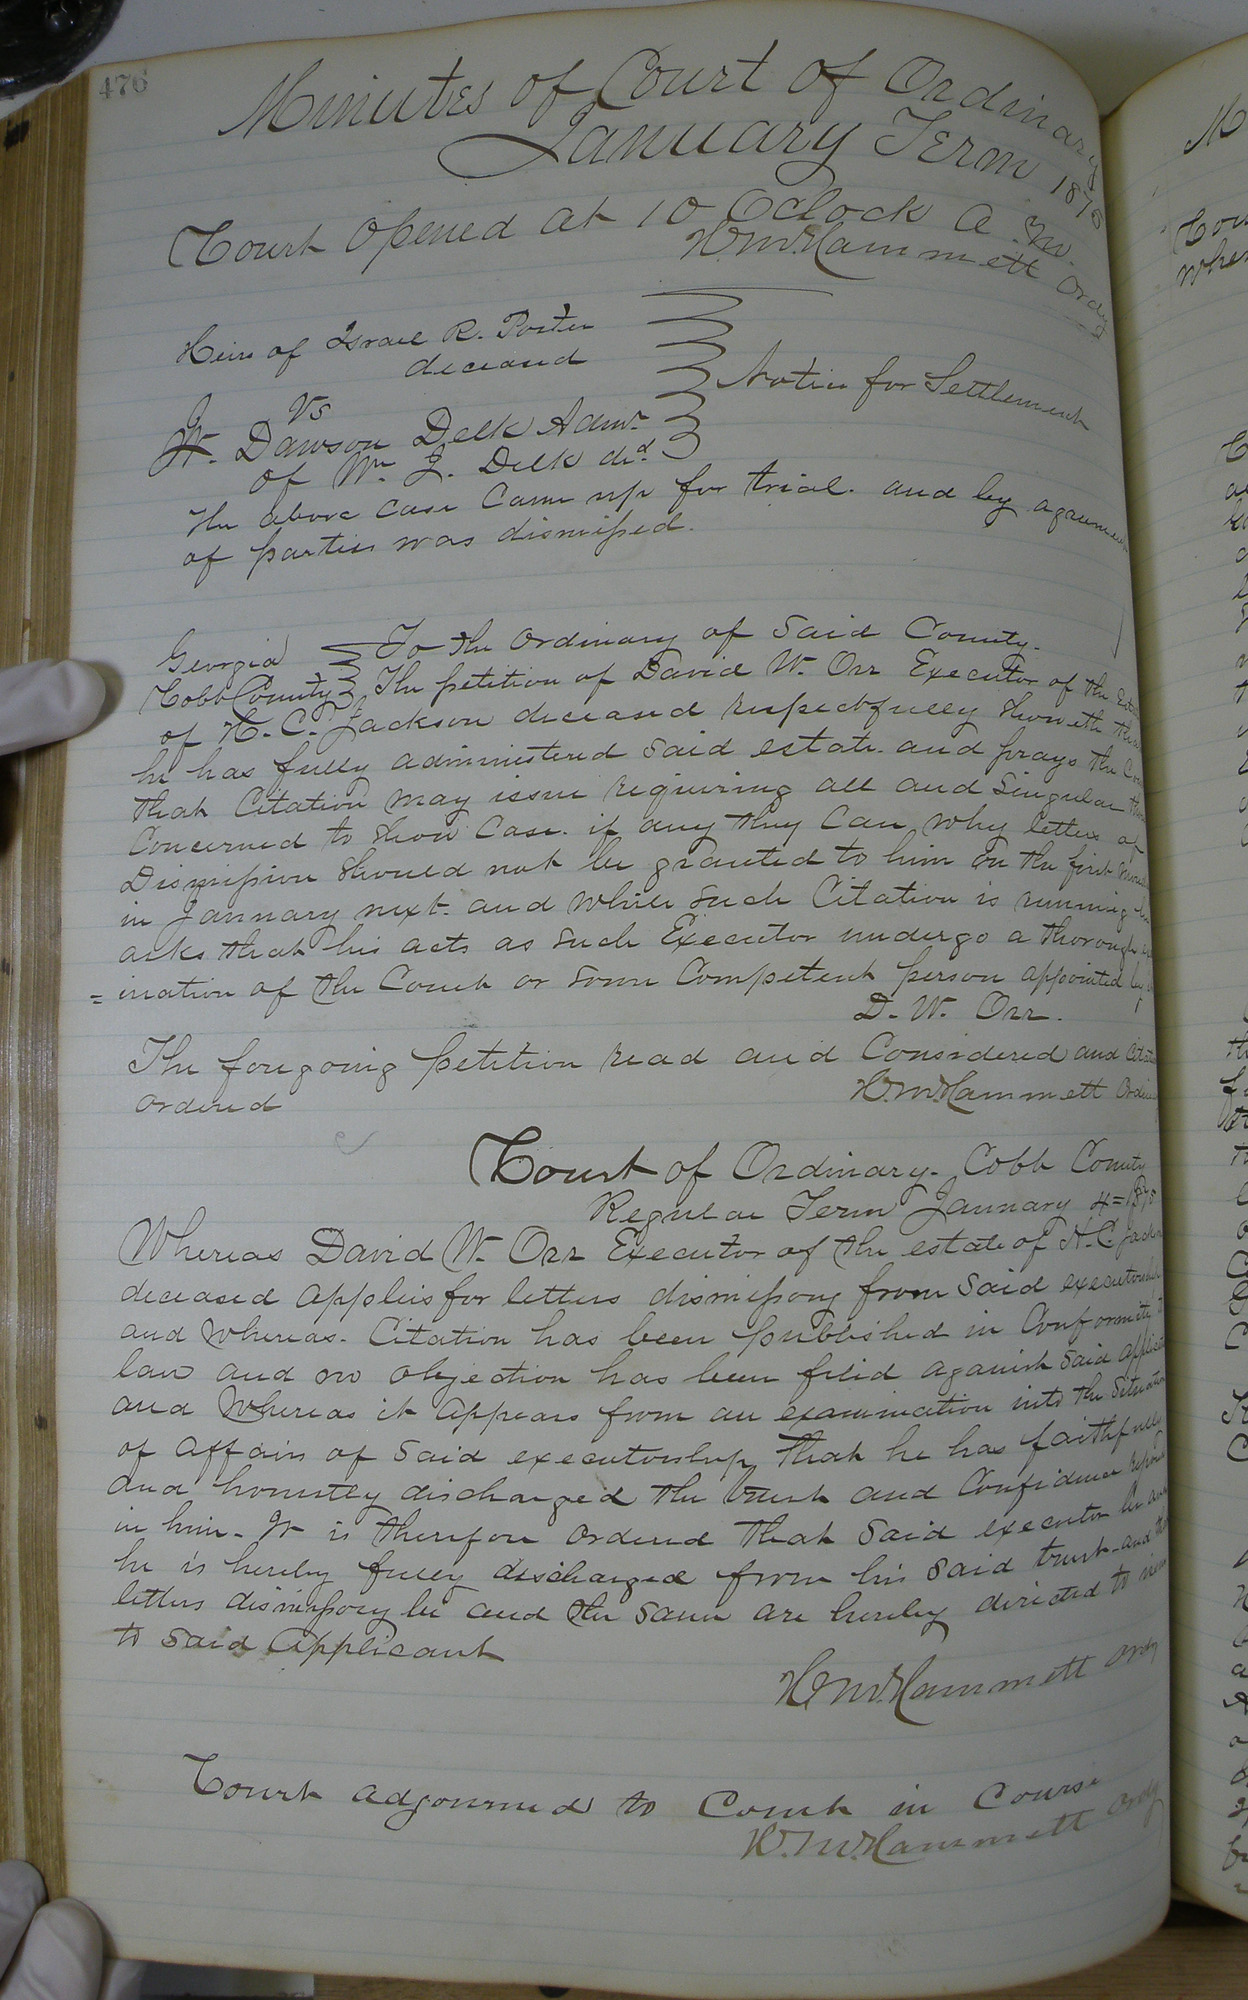 476
Minutes of Court of Ordinary
January Term 1875
Court opened at 10 Oclock A. M.
H. M. Hammett Ordy
Heirs of Israel R. Porter
deceased
Vs
J
W. Dawson Delk Admr
of Wm J. Delk decd
Notice for Settlement
The above case Came up for trial. and by agreement
of parties was dismissed.
Georgia
Cobb County
To the Ordinary of Said County.
The petition of David W. Orr Executor of the
of N. C. Jackson deceased respectfully showeth that
he has fully administered said estate. and prays the
that Citation may issue requiring all and Singular
Concerned to show Case. if any they Can why letters of
Dismission should not be granted to him on the first
in January next. and while such Citation is running
asks that his acts as such Executor undergo a thorough
= ination of the Court or some Competent person appointed by
D. W. Orr.
The foregoing petition read and Considered and
ordered
H. M. Hammett
Court of Ordinary. Cobb County
Regular Term January 4 = 1875
Whereas David W. Orr Executor of the estate of N. C.
deceased applies for letters dismissory from said
and whereas. Citation has been published in Conformity
law and no objection has been filed against said
and Whereas it appears from an examination into the situation
of affairs of said executorship, that he has faithfully
and honestly discharged the trust and Confidence
in him. It is therefore ordered that said executor be and
he is hereby fully discharged from his said trust. and
letters dismissory be and the same are hereby directed to
to said Applicant
H. M. Hammett Ordy
Court adjourned to Court in Course
H. M. Hammett Ordy